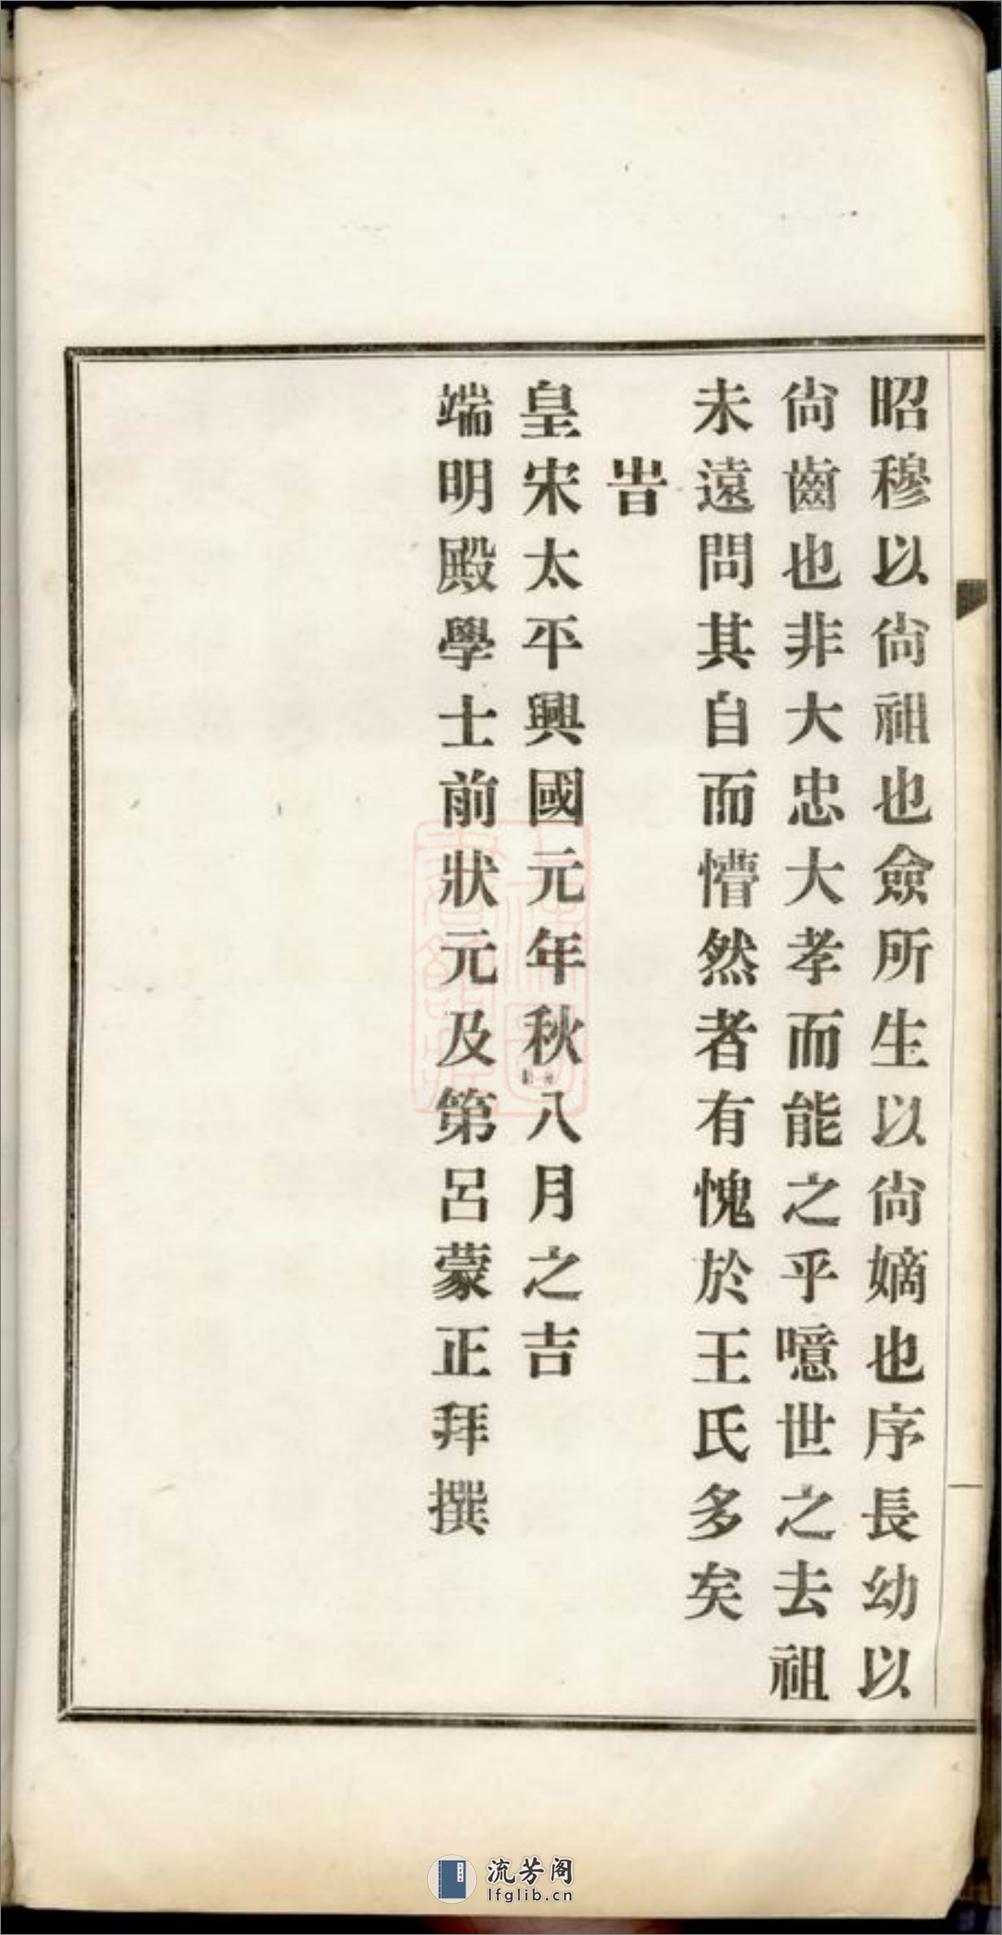 昭穆以尙祖也僉所生以尙嫡也序長幼以
尙齒也非大忠大孝而能之乎噫世之去祖
未遠問其自而懵然者有愧於王氏多矣
旹
皇宋太平興國元年秋八月之吉
端明殿學士前狀元及第呂蒙正拜撰
流芳阁
lfglib.cn